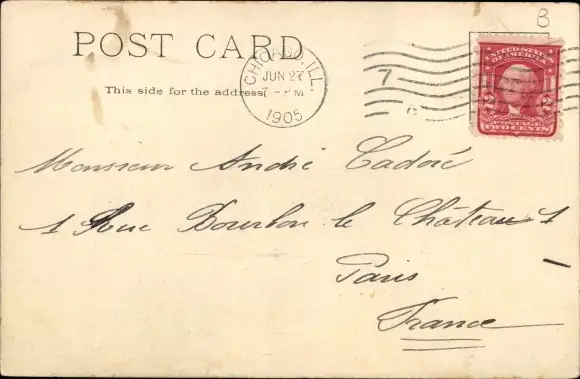 B
POST CARD
This side for the address
CHICAGO, ILL.
JUN 27
7 - PM
1905
7
C
UNITED STATES
OF AMERICA
2 2
POSTAGE
TWO CENTS
Monsieur André Cadoré
1 Rue Bourbon le Château 1
Paris
France